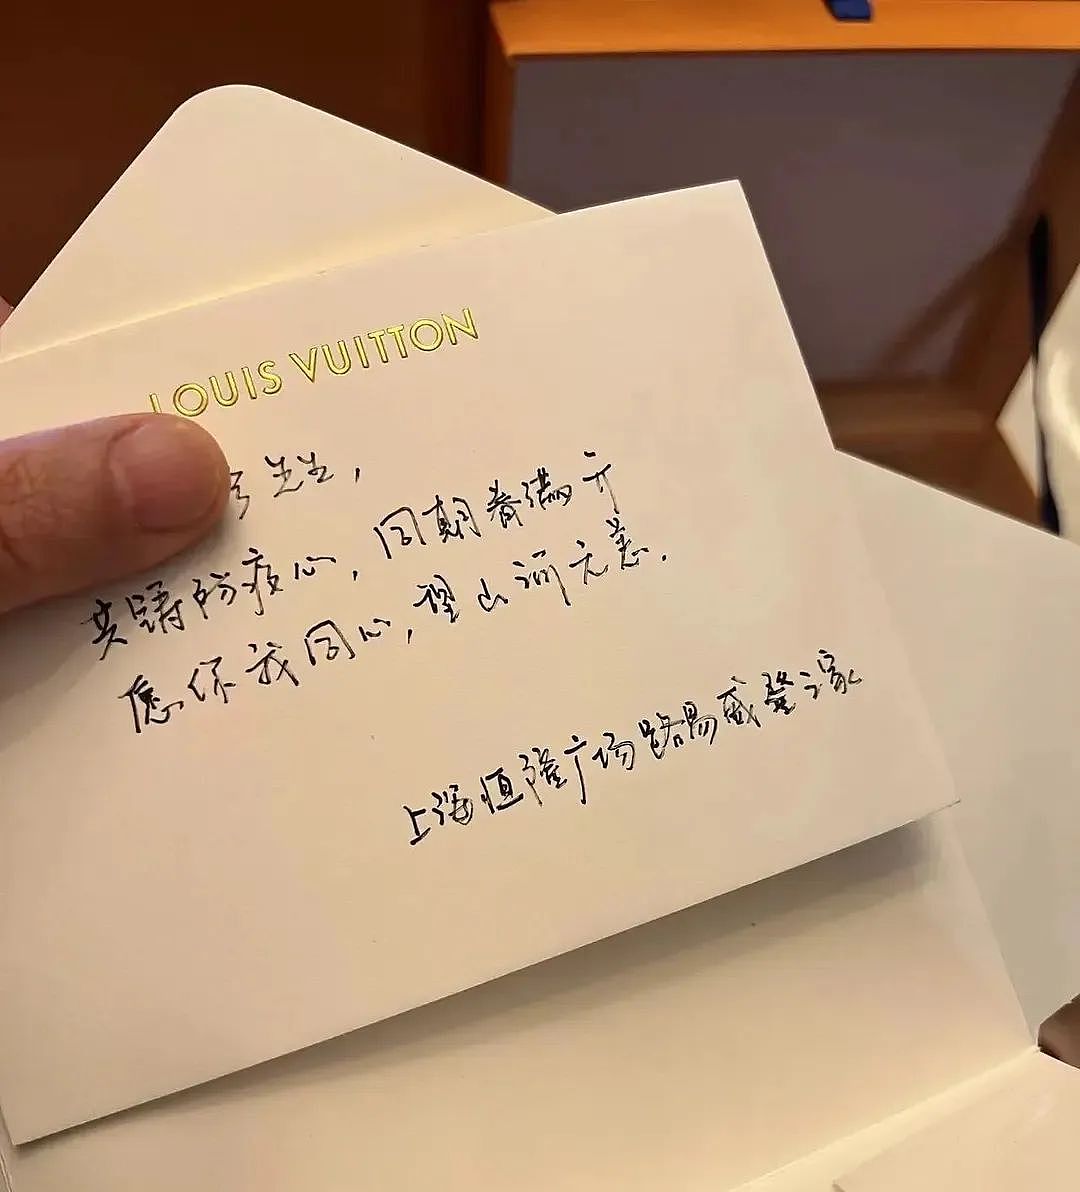 LOUIS VUITTON
先生,
共铸防疫心, 同期春满开
愿你我同心, 望山河无恙.
上海恒隆广场路易威登之家